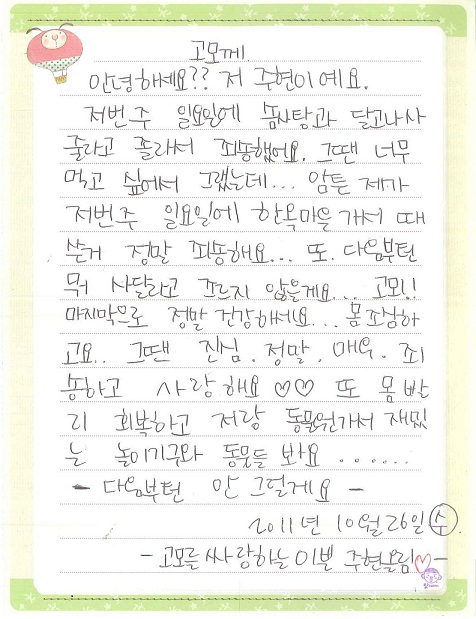 고모께.
안녕하세요?? 저 주현이예요.
저번주 일요일에 솜사탕과 달고나사
줄라고 졸라서 죄송했어요. 그땐 너무
먹고 싶어서 그랬는데... 암튼 제가
저번주 일요일에 한옥마을가서 떼
쓴거 정말 죄송해요... 또. 다음부턴
뭐 사달라고 조르지 않을게요... 고모!!
마지막으로 정말 건강하세요... 몸조심하
고요.. 그땐 진심. 정말. 매우. 죄
송하고 사랑해요♡♡ 또 몸 빨
리 회복하고 저랑 동물원가서 재밌
는 놀이기구와 동물들 봐요 ......
- 다음부턴 안 그럴게요 -
2011년 10월 26일 (수)
- 고모를 싸랑하는 이쁜 주현올림♡ -